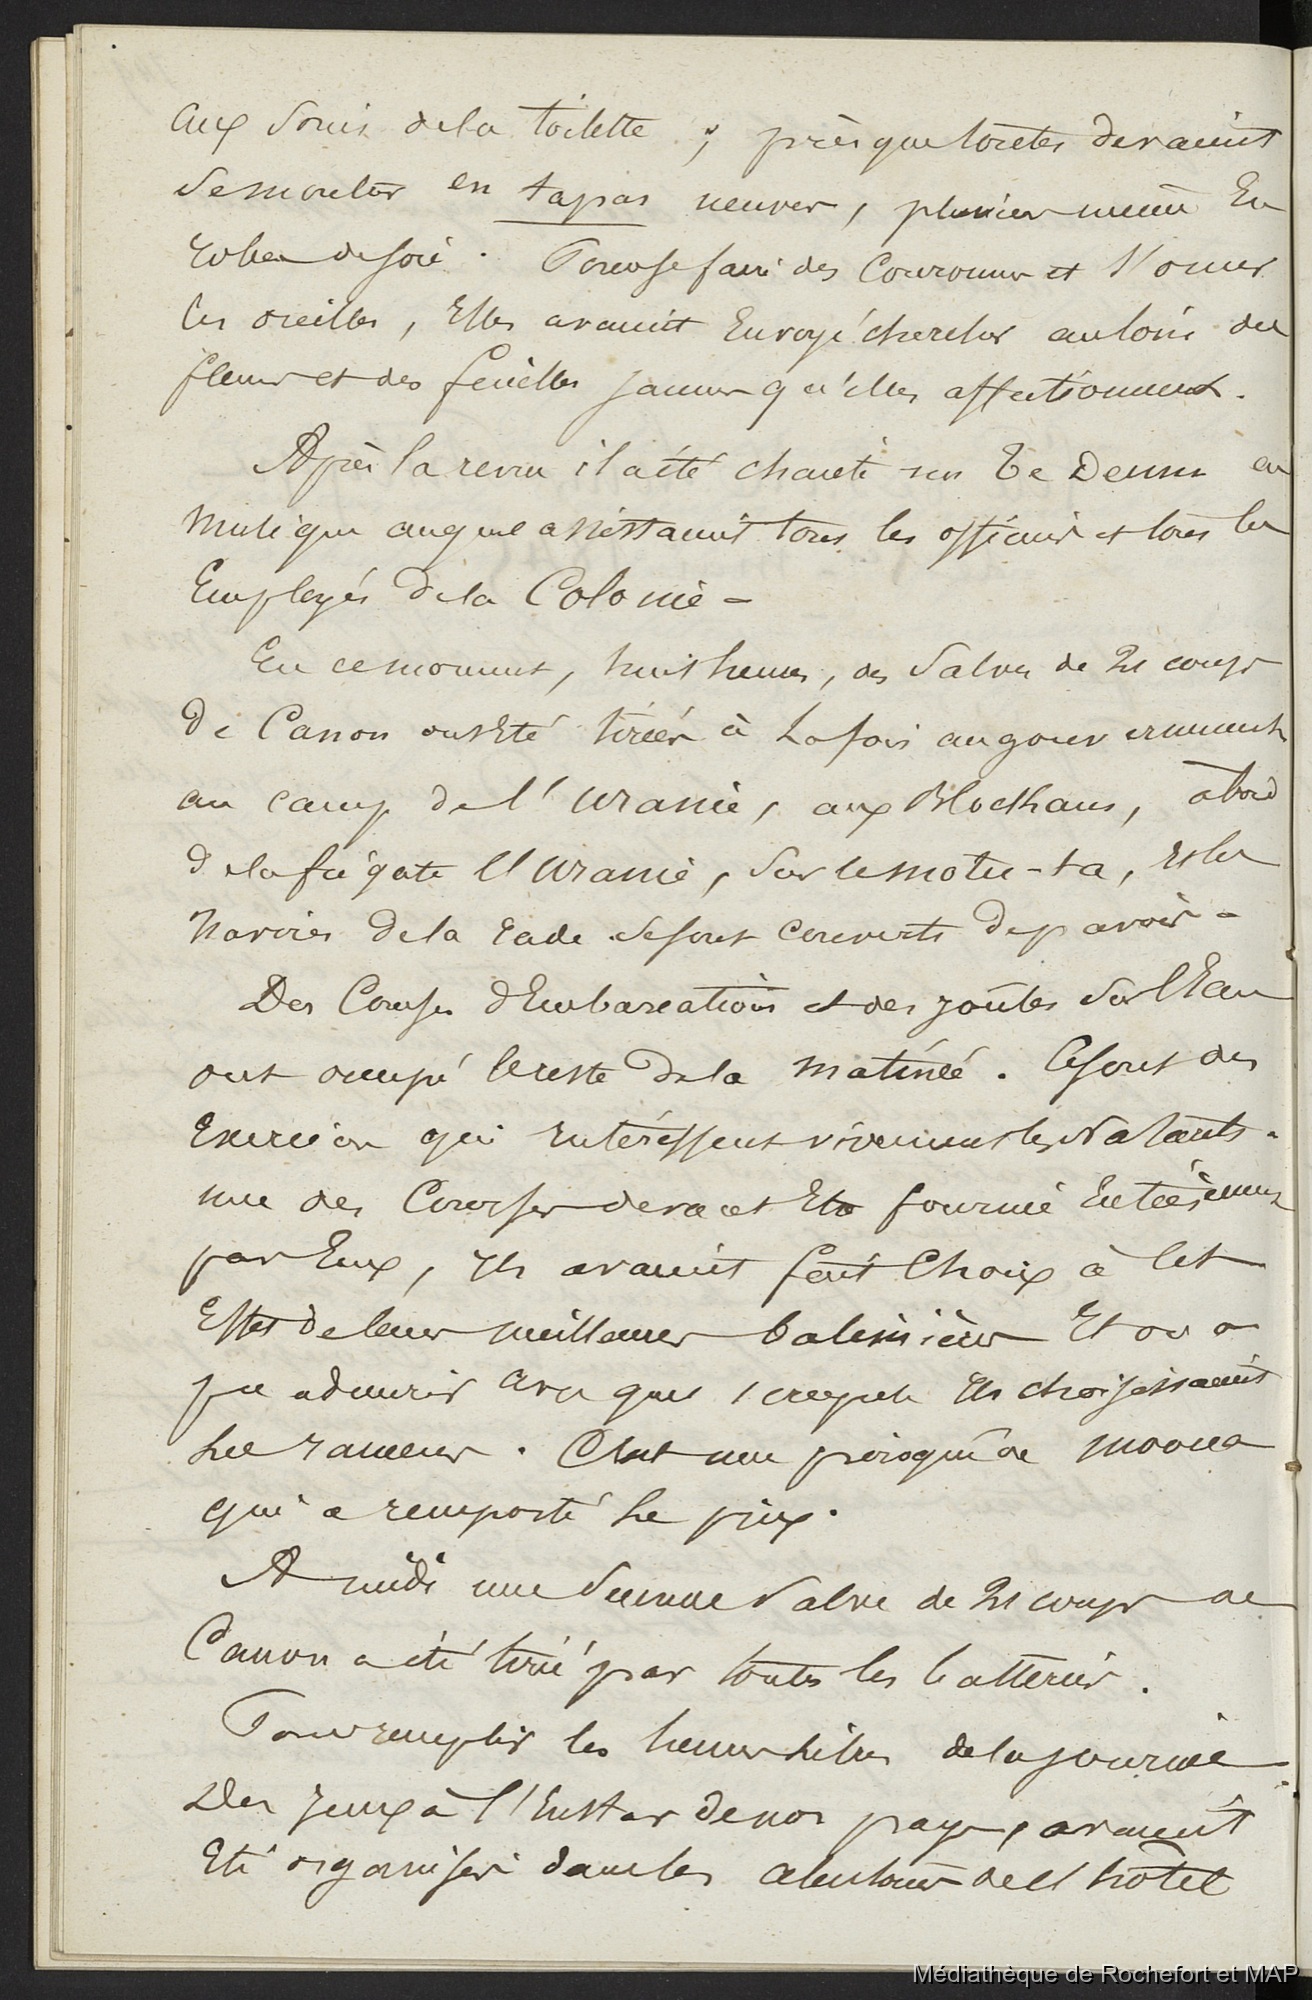 aux soins de la toilette ; presque toutes devaient
se montrer en tapas neuves, plusieurs même en
robes de soie. Pour se faire des couronnes et s'orner
les oreilles, Elles avaient Envoyé chercher au loin des
fleurs et des feuilles jaunes qu'elles affectionnent.
Après la revue il a été chanté un Te Deum en
musique auquel assistaient tous les officiers et tous les
Employés de la Colonie -
En ce moment, huit heures, des Salves de 21 coups
De Canon ont Eté tirées à la fois au gouvernement
au camp de l'uranie, aux Blockhaus, à bord
de la frégate l'Uranie, sur le motu-ta, Et les
navires de la rade se sont couverts de pavois -
Des Courses d'Embarcations et des joûtes sur l'Eau
ont occupé le reste de la matinée. Ce sont des
Exercices qui intéressent vivement les Naturels.
une des Courses devait Etre fournie entièrement
par Eux, Ils avaient fait choix à cet
Effet de leurs meilleures baleinières Et on a
pu admirer avec quel scrupule ils choisissaient
les rameurs. C'est une pirogue de moorea
qui a remporté le prix.
A midi une seconde salve de 21 coups de
Canon a été tirée par toutes les batteries.
Pour remplir les heures libres de la journée
Des jeux à l'Instar de nos pays, avaient
Eté organisés dans les alentours de l'hôtel
Médiathèque de Rochefort et MAP